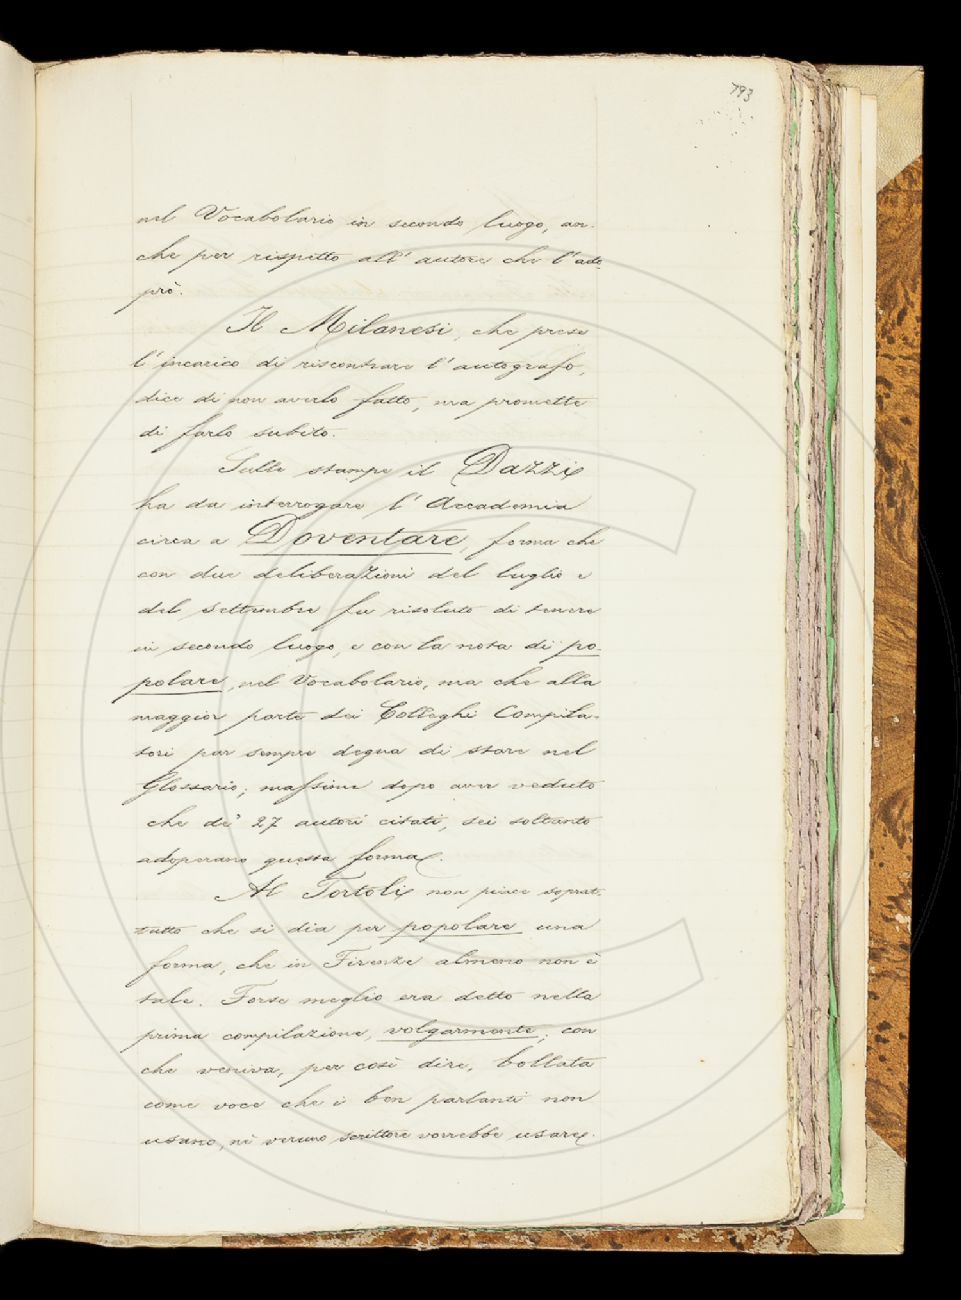 793
nel Vocabolario in secondo luogo, an-
che per rispetto all' autore che l'ado-
prò.
Il Milanesi, che prese
l'incarico di riscontrare l'autografo,
dice di non averlo fatto, ma promette
di farlo subito.
Sulle stampe il Dazzi
ha da interrogare l'Accademia
circa a Doventare, forma che
con due deliberazioni del luglio e
del Settembre fu risoluto di tenere
in secondo luogo, e con la nota di po-
polare, nel Vocabolario, ma che alla
maggior parte dei Colleghi Compila-
tori par sempre degna di stare nel
Glossario; massime dopo aver veduto
che de' 27 autori citati, sei soltanto
adoperano questa forma.
Al Tortoli non piace soprat-
tutto che si dia per popolare una
forma, che in Firenze almeno non è
tale. Forse meglio era detto nella
prima compilazione, volgarmente; con
che veniva, per così dire, bollata
come voce che i ben parlanti non
usano, nè veruno scrittore vorrebbe usare.